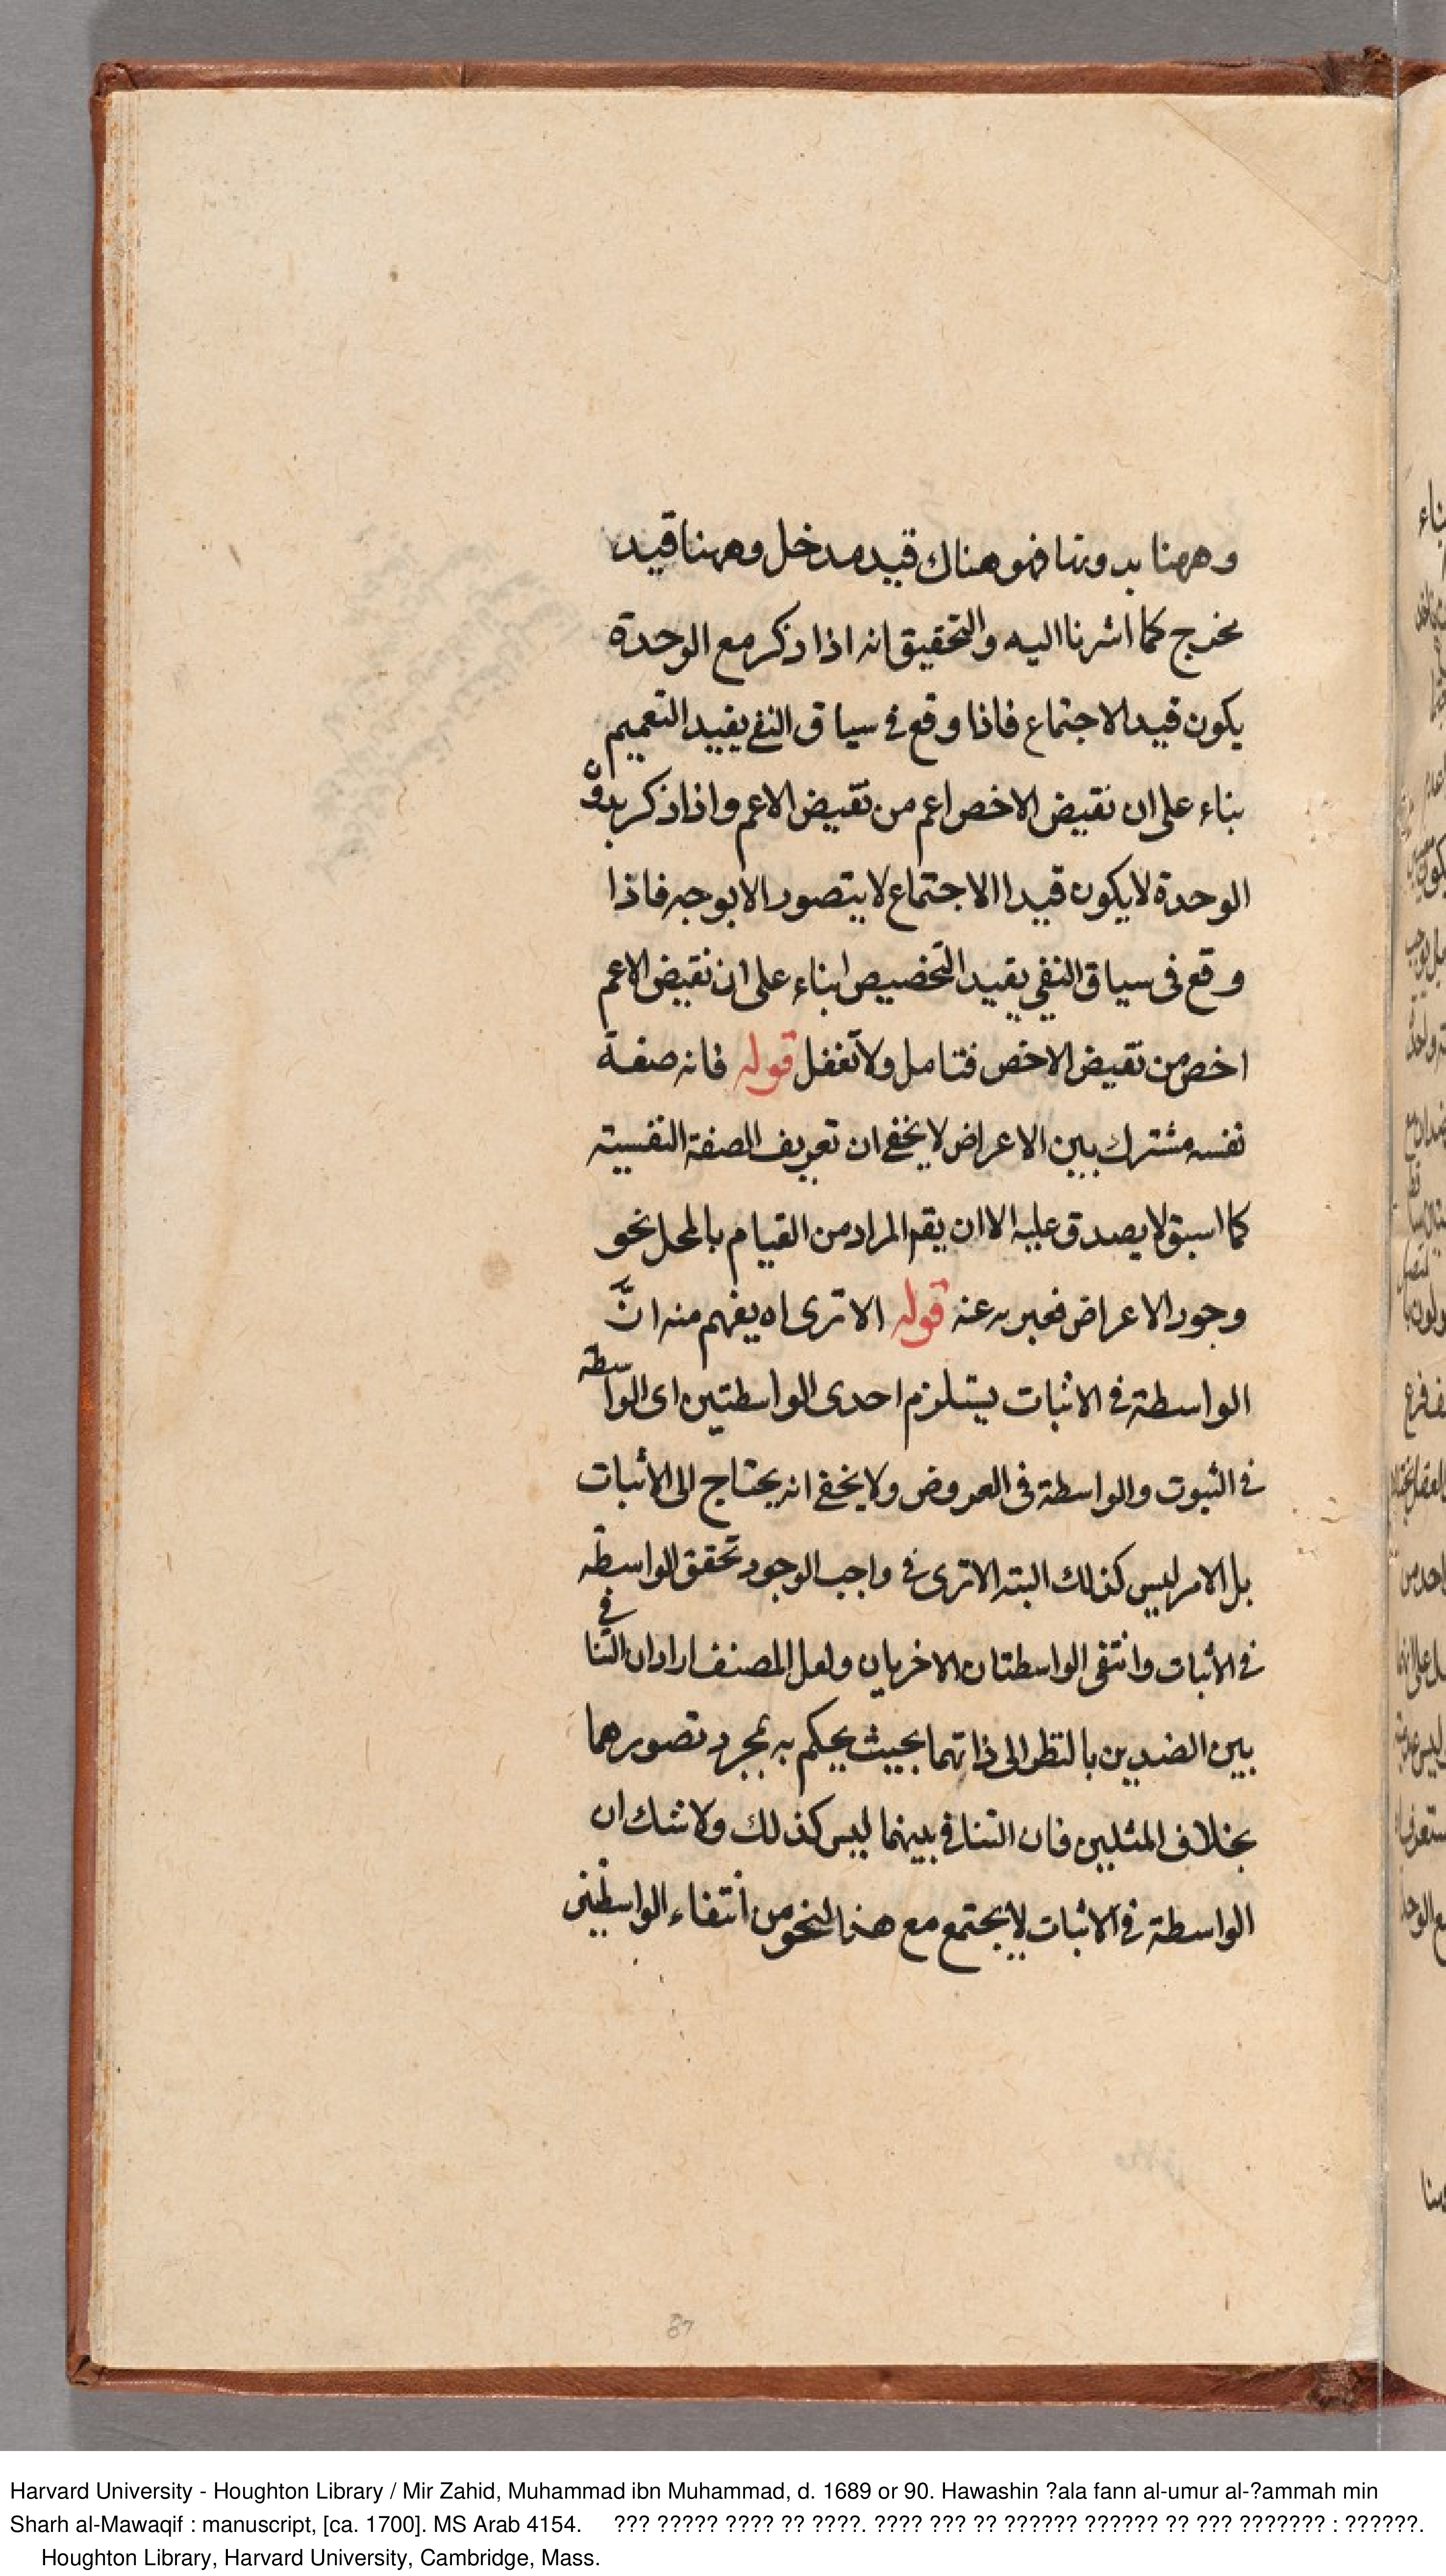 وههنا بدونها فهو هناك قيد مدخل وههنا قيد
مخرج كما اشرنا اليه والتحقيق انه اذا ذكر مع الوحدة
يكون قيد الاجتماع فاذا وقع في سياق النفي يفيد التعميم
بناء على ان نقيض الاخص اعم من نقيض الاعم واذا ذكر بدون
الوحدة لا يكون قيدا الاجتماع لا يتصور الا بوجه فاذا
وقع فى سياق النفي يفيد التخصيص ابناء على ان نقيض الاعم
اخص من نقيض الاخص فتامل ولا تغفل قوله فانه صفة
نفسه مشترك بين الاعراض لا يخفى ان تعريف الصفة النفسية
كما سبق لا يصدق عليه الا ان يقم المراد من القيام بالمحل نحو
وجود الاعراض فعبر به عنه قوله الا ترى اه يفهم منه انَّ
الواسطة في الاثبات يستلزم احدى الواسطتين اى الواسطة
في الثبوت والواسطة فى العروض ولا يخفى انه يحتاج الى الاثبات
بل الامر ليس كذلك البتة الا ترى في واجب الوجود تحقق الواسطة
في الاثبات وانتفى الواسطتان الاخريان ولعل المصنف اراد ان التنافي
بين الضدين بالنظر الى ذاتهما بحيث يحكم به بمجرد تصورهما
بخلاف المثلين فان التنافي بينهما ليس كذلك ولا شك ان
الواسطة في الاثبات لا يجتمع مع هذا النحو من انتفاء الواسطتين
Harvard University - Houghton Library / Mir Zahid, Muhammad ibn Muhammad, d. 1689 or 90. Hawashin ?ala fann al-umur al-?ammah min
Sharh al-Mawaqif : manuscript, [ca. 1700]. MS Arab 4154. ??? ????? ???? ?? ????. ???? ??? ?? ?????? ?????? ?? ??? ??????? : ??????.
Houghton Library, Harvard University, Cambridge, Mass.